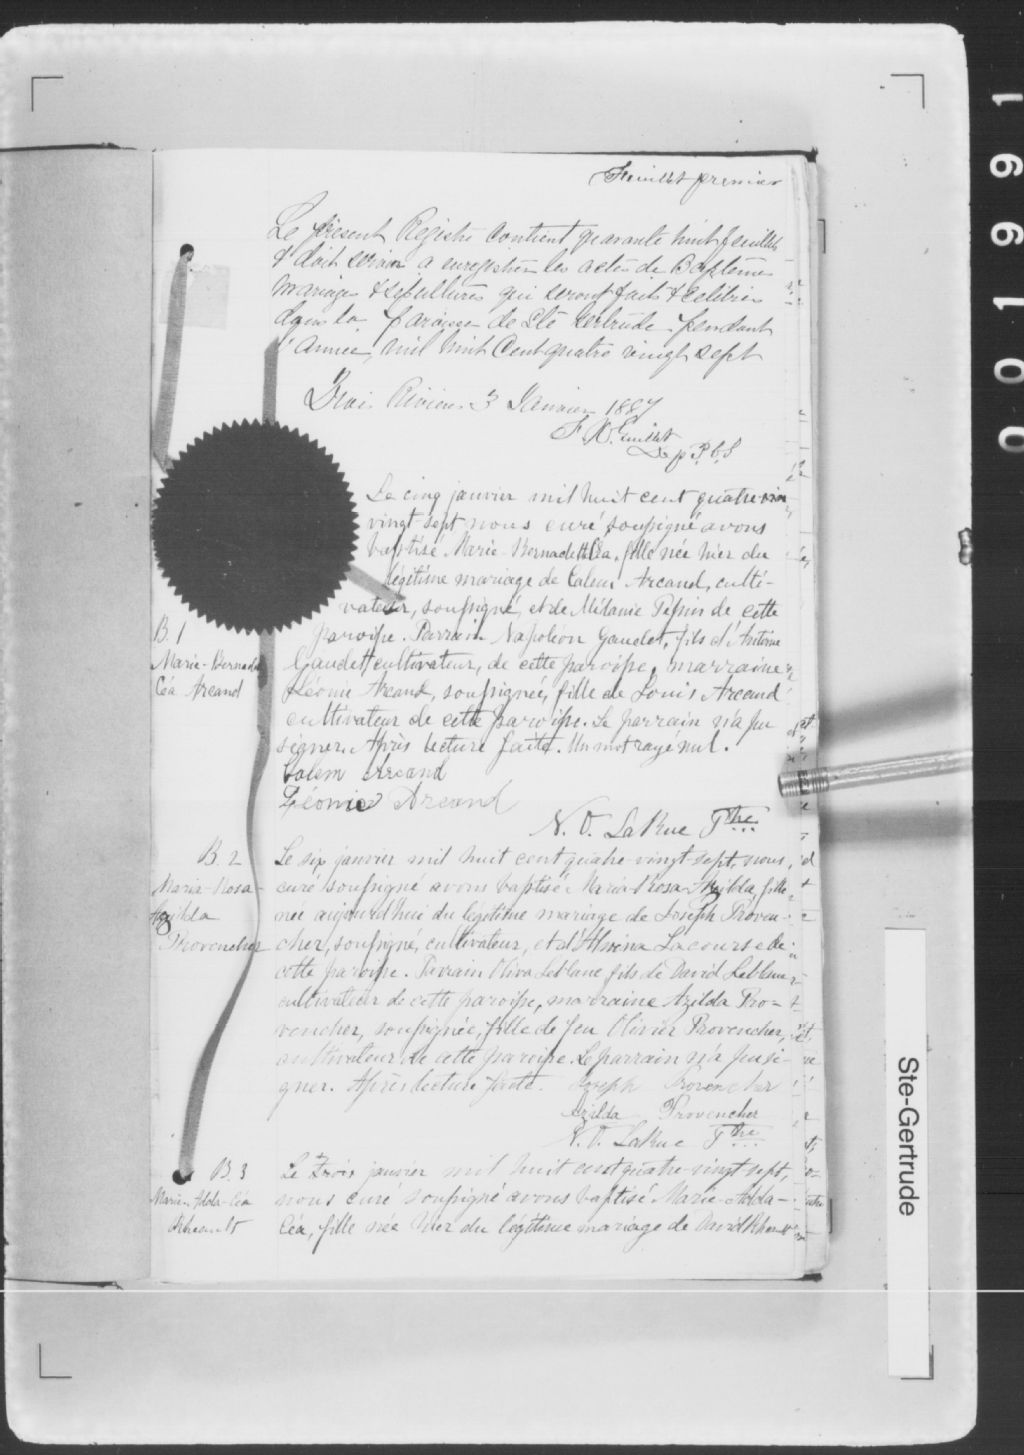 Feuillet premier
Le présent Registre contient quarante huit feuillets
& doit servir a enregistrer les actes de Baptêmes
Mariages & sépultures qui seront faits & célébrés
dans la paroisse de Ste Gertrude pendant
l'année mil huit Cent quatre vingt sept
Trois Rivières 3 Janvier 1887
F X Guillet
Dep P.C.S
Le cinq janvier mil huit cent quatre-vin
vingt-sept nous curé soussigné avons
baptisé Marie-Bernadette Céa, fille née hier du
légitime mariage de Calem Arcand, culti-
vateur, soussigné, et de Mélanie Pepin de cette
B. 1
paroisse. Parrain Napoléon Gaudet, fils d'Antoine
Marie-Bernadette
Gaudet cultivateur, de cette paroisse, marraine
Céa Arcand
Léonie Arcand, soussignée, fille de Louis Arcand
cultivateur de cette paroisse. Le parrain n'a pu
signer. Après lecture faite. Un mot rayé nul.
Calem Arcand
Léonie Arcand
N. O. LaRue Ptre
B. 2
Le six janvier mil huit cent quatre-vingt-sept, nous
Maria-Rosa-
curé soussigné avons baptisé Maria-Rosa-Azilda, fille
Azilda
née aujourd'hui du légitime mariage de Joseph Proven-
Provencher
cher, soussigné, cultivateur, et d'Alvina Lacourse de
cette paroisse. Parrain Oliva Leblanc fils de David Leblanc
cultivateur de cette paroisse, marraine Azilda Pro-
vencher, soussignée, fille de feu Olivier Provencher,
cultivateur de cette paroisse. Le parrain n'a pu si-
gner. Après lecture faite. Joseph Provencher
Azilda Provencher
N. O. LaRue Ptre
B. 3
Le Trois janvier mil huit cent quatre-vingt sept,
Marie-Alda-Céa
nous curé soussigné avons baptisé Marie-Alda-
Céa, fille née hier du légitime mariage de David
Ste-Gertrude
001991